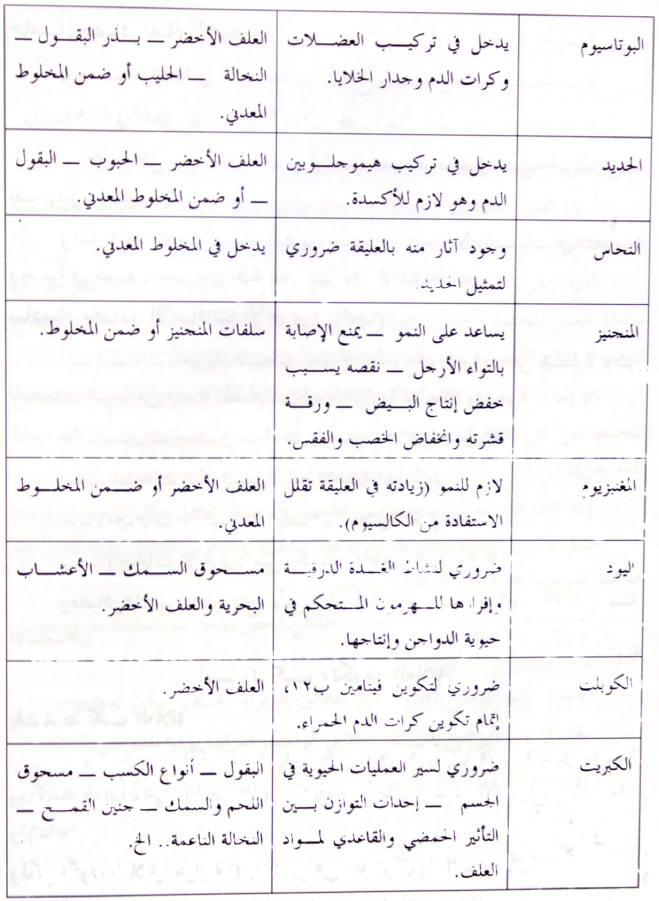 البوتاسيوم
يدخل في تركيب العضلات
وكرات الدم وجدار الخلايا.
العلف الأخضر — بذر البقول —
النخالة — الحليب أو ضمن المخلوط
المعدني.
الحديد
يدخل في تركيب هيموجلوبين
الدم وهو لازم للأكسدة.
العلف الأخضر — الحبوب — البقول
— أو ضمن المخلوط المعدني.
النحاس
وجود آثار منه بالعليقة ضروري
لتمثيل الحديد.
يدخل في المخلوط المعدني.
المنجنيز
يساعد على النمو — يمنع الإصابة
بالتواء الأرجل — نقصه يسبب
خفض إنتاج البيض — ورقة
قشرته وانخفاض الخصب والفقس.
سلفات المنجنيز أو ضمن المخلوط.
المغنيزيوم
لازم للنمو (زيادته في العليقة تقلل
الاستفادة من الكالسيوم).
العلف الأخضر أو ضمن المخلوط
المعدني.
اليود
ضروري لنشاط الغدة الدرقية
وإفرازها للهرمون المتحكم في
حيوية الدواجن وإنتاجها.
مسحوق السمك — الأعشاب
البحرية والعلف الأخضر.
الكوبلت
ضروري لتكوين فيتامين ب١٢،
إتمام تكوين كرات الدم الحمراء.
العلف الأخضر.
الكبريت
ضروري لسير العمليات الحيوية في
الجسم — إحداث التوازن بين
التأثير الحمضي والقاعدي لمواد
العلف.
البقول — أنواع الكسب — مسحوق
اللحم والسمك — جنين القمح —
النخالة الناعمة.. الخ.